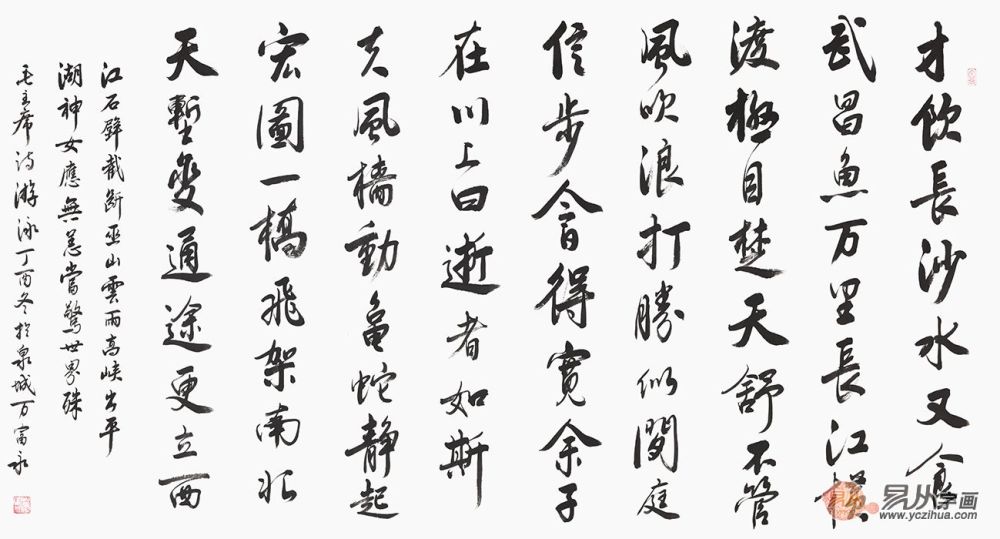 才飲長沙水又食
武昌魚万里長江横
渡極目楚天舒不管
風吹浪打勝似閑庭
信步今日得寬余子
在川上曰逝者如斯
夫風檣動龜蛇静起
宏圖一橋飛架南北
天塹變通途更立西
江石壁截斷巫山雲雨高峡出平
湖神女應無恙當驚世界殊
毛主席诗游泳丁酉冬於泉城万富永
易从字画
www.yczihua.com